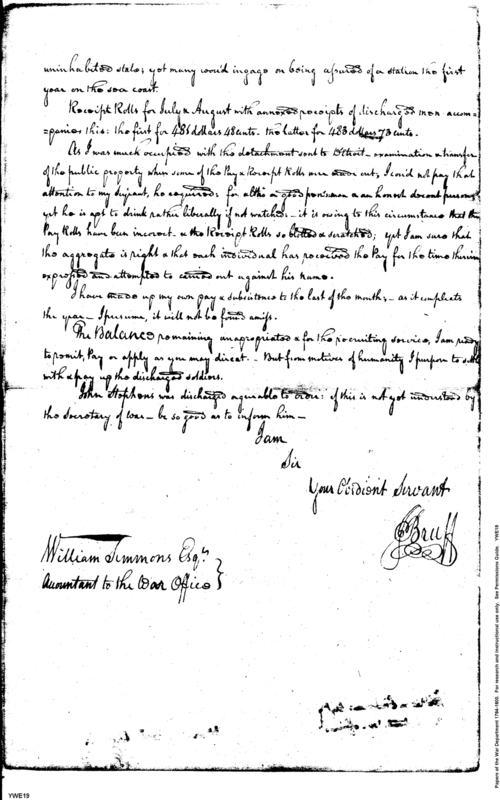 uninhabited state; yet many wou'd ingage on being assured of a station the first
year on the sea coast.
Receipt Rolls for July & August with annexed receipts of discharged men accom=
=panies this: the first for 481 dollars 48 cents. the latter for 483 dollars 73 cents.
As I was much occupied with the detachment sent to Detroit - examination & transfer
of the public property when some of the Pay & Receipt Rolls were made out, I could not pay that
attention to my serjeant, he required: for altho a good penman & an honest decent person
yet he is apt to drink rather liberally if not watched - it is owing to this circumstance that the
Pay Rolls have been incorrect & the Receipt Rolls so blotted & scratched; yet I am sure that
the aggregate is right & that each individual has received the Pay for the time therein
expressed and attempted to carried out against his name.
I have made up my own pay & subsistence to the last of the month; - as it compleats
the year - I presume, it will not be found amiss.
The Balance remaining unapropriated & for the recruiting service, I am ready
to remit, Pay or apply as you may direct. - But from motives of humanity I purpose to settle
with & pay up the discharged soldiers.
John Stephens was discharged agreeable to order: if this is not yet understood by
the Secretary of War - be so good as to inform him -
I am
Sir
Your Obedient Servant
JBruff
William Simmons Esqr.
Accountant to the War Office
Papers of the War Department 1784-1800. For research and instructional use only. See Permissions Guide. YWE19
YWE19